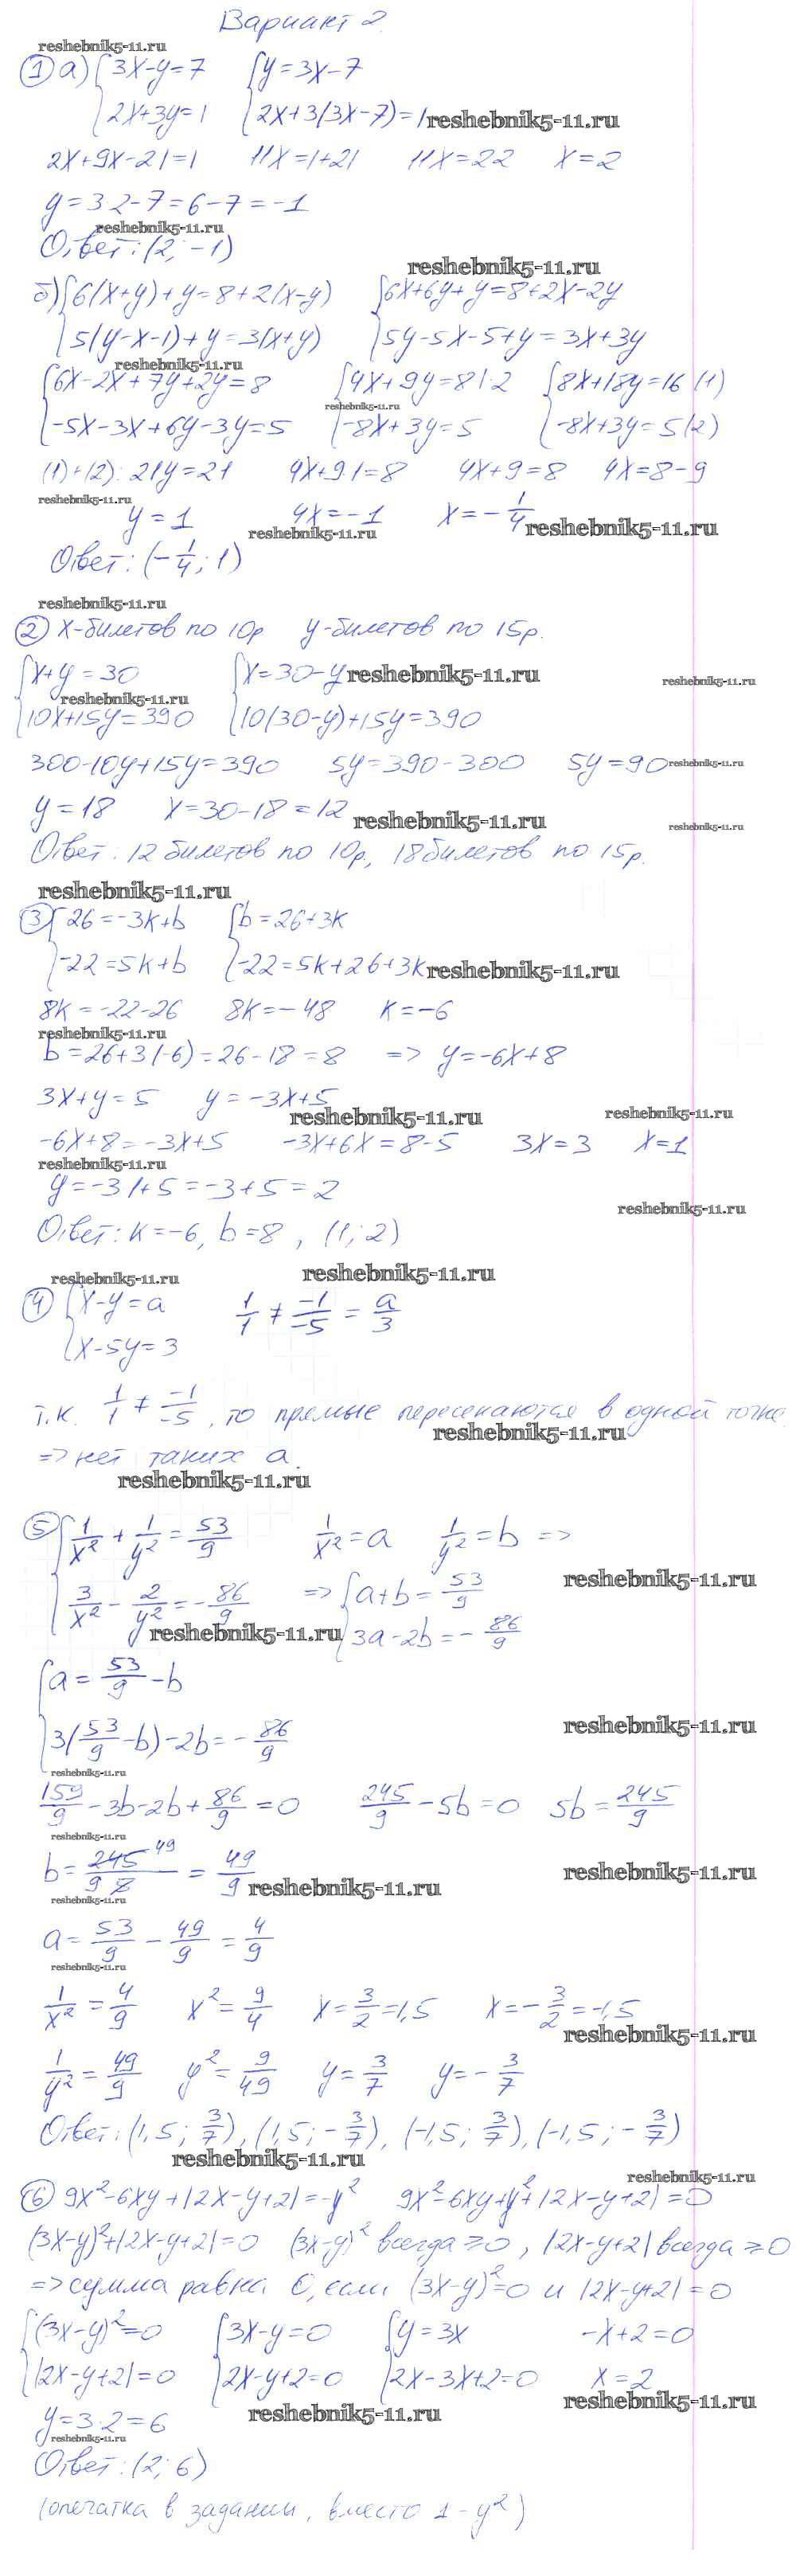 Вариант 2
reshebnik5-11.ru
① а) {3x-y=7 {y=3x-7
2x+3y=1 2x+3(3x-7)=1 reshebnik5-11.ru
2x+9x-21=1 11x=1+21 11x=22 x=2
y=3·2-7=6-7=-1
reshebnik5-11.ru
Ответ: (2; -1)
reshebnik5-11.ru
б) {6(x+y)+y=8+2(x-y) {6x+6y+y=8+2x-2y
5(y-x-1)+y=3(x+y) 5y-5x-5+y=3x+3y
reshebnik5-11.ru
{6x-2x+7y+2y=8 {4x+9y=8 |·2 {8x+18y=16 (1)
reshebnik5-11.ru
-5x-3x+6y-3y=5 -8x+3y=5 -8x+3y=5 (2)
(1)+(2): 21y=21 4x+9·1=8 4x+9=8 4x=8-9
reshebnik5-11.ru
y=1 4x=-1 x=-1/4 reshebnik5-11.ru
reshebnik5-11.ru
Ответ: (-1/4; 1)
reshebnik5-11.ru
② x-билетов по 10р y-билетов по 15р.
{x+y=30 {x=30-y reshebnik5-11.ru reshebnik5-11.ru
reshebnik5-11.ru
10x+15y=390 10(30-y)+15y=390
300-10y+15y=390 5y=390-300 5y=90 reshebnik5-11.ru
y=18 x=30-18=12 reshebnik5-11.ru reshebnik5-11.ru
Ответ: 12 билетов по 10р, 18 билетов по 15р.
reshebnik5-11.ru
③ {26=-3k+b {b=26+3k
-22=5k+b -22=5k+26+3k reshebnik5-11.ru
8k=-22-26 8k=-48 k=-6
reshebnik5-11.ru
b=26+3·(-6)=26-18=8 => y=-6x+8
3x+y=5 y=-3x+5
reshebnik5-11.ru reshebnik5-11.ru
-6x+8=-3x+5 -3x+6x=8-5 3x=3 x=1
reshebnik5-11.ru
y=-3·1+5=-3+5=2
reshebnik5-11.ru
Ответ: k=-6, b=8, (1; 2)
reshebnik5-11.ru reshebnik5-11.ru
④ {x-y=a 1/1 ≠ -1/-5 = a/3
x-5y=3
Т.к. 1/1 ≠ -1/-5, то прямые пересекаются в одной точке
reshebnik5-11.ru
=> нет таких a.
reshebnik5-11.ru
⑤ {1/x²+1/y²=53/9 1/x²=a 1/y²=b =>
reshebnik5-11.ru
3/x²-2/y²=-86/9 => {a+b=53/9
reshebnik5-11.ru 3a-2b=-86/9
{a=53/9-b
reshebnik5-11.ru
3(53/9-b)-2b=-86/9
reshebnik5-11.ru
159/9-3b-2b+86/9=0 245/9-5b=0 5b=245/9
reshebnik5-11.ru
b=245 49/9·5=49/9 reshebnik5-11.ru reshebnik5-11.ru
reshebnik5-11.ru
a=53/9-49/9=4/9
reshebnik5-11.ru
1/x²=4/9 x²=9/4 x=3/2=1,5 x=-3/2=-1,5
reshebnik5-11.ru
1/y²=49/9 y²=9/49 y=3/7 y=-3/7
Ответ: (1,5; 3/7), (1,5; -3/7), (-1,5; 3/7), (-1,5; -3/7)
reshebnik5-11.ru
reshebnik5-11.ru
⑥ 9x²-6xy+|2x-y+2|=-y² 9x²-6xy+y²+|2x-y+2|=0
(3x-y)²+|2x-y+2|=0 (3x-y)² всегда ≥0, |2x-y+2| всегда ≥0
=> сумма равна 0, если (3x-y)²=0 и |2x-y+2|=0
{(3x-y)²=0 {3x-y=0 {y=3x -x+2=0
|2x-y+2|=0 2x-y+2=0 2x-3x+2=0 x=2
reshebnik5-11.ru reshebnik5-11.ru
y=3·2=6
reshebnik5-11.ru
Ответ: (2; 6)
(опечатка в задании, вместо 1 -y²)